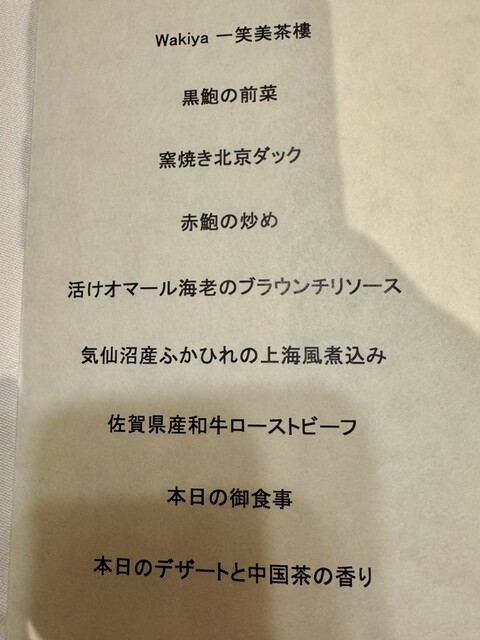 Wakiya 一笑美茶樓
黒鮑の前菜
窯焼き北京ダック
赤鮑の炒め
活けオマール海老のブラウンチリソース
気仙沼産ふかひれの上海風煮込み
佐賀県産和牛ローストビーフ
本日の御食事
本日のデザートと中国茶の香り